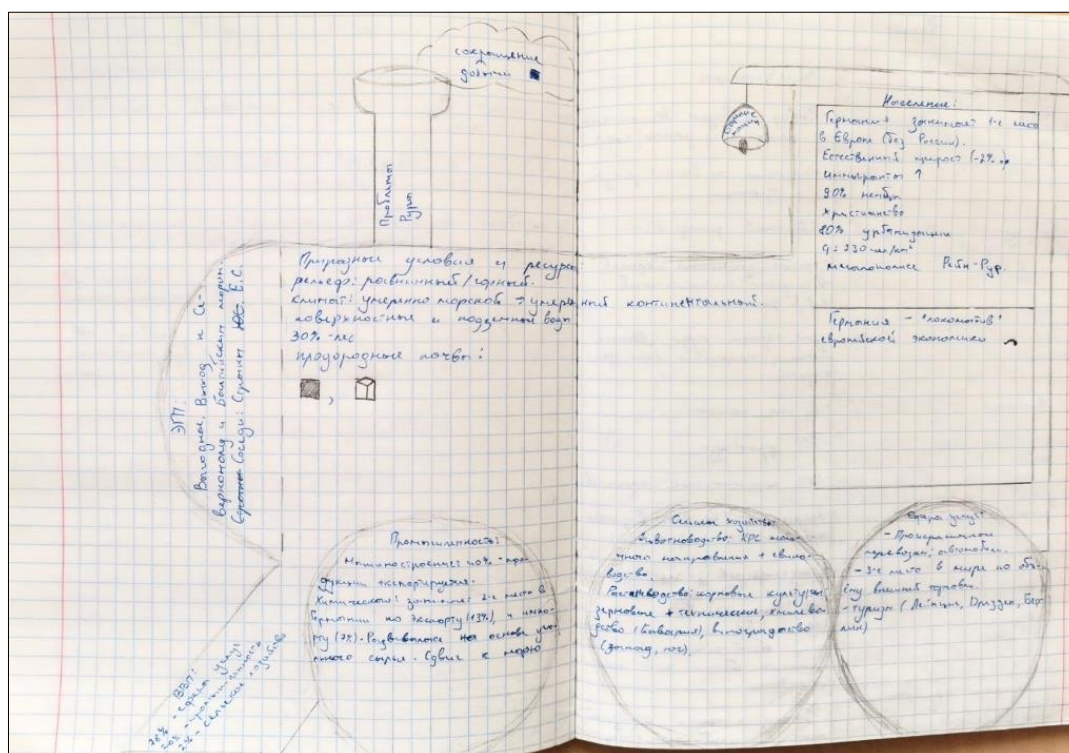 сокращение
добычи
Проблемы
Рура
старение
нации
Население:
Германия занимает 1-е место
в Европе (без России).
Естественный прирост (-2%)
иммигранты ↑
90% немцы
христианство
80% урбанизации
q = 230 чел/км²
мегалополисе Рейн-Рур.
Германия - "локомотив"
европейской экономики
ЭГП:
Выгодное. Выход к Се-
верному и Балтийским морям.
Соседи: Страны Е.С.
Природные условия и ресурсы
рельеф: равнинный/горный.
климат: умеренно морской → умеренный континентальный.
поверхностные и подземные воды
30% - лес
плодородные почвы!
Промышленность:
Машиностроение: 40% - про-
дукции экспортируется.
Химическая: занимает 2-е место в
Германии по экспорту (13%), и импо-
рту (7%). Развивалась на основе уго-
льного сырья. Сдвиг к морю
ВВП:
78% - сфера услуг
20% - промышленность
2% - сельское хозяйство
Сельское хозяйство
Животноводство: КРС моло-
чного направления + свино-
водство.
Растениеводство: кормовые культуры,
зерновые + технические, хмелево-
дство (Бавария), виноградство
(запад, юг).
Сфера услуг:
перевозки; автомобили.
- 3-е место в мире по объ-
ёму внешней торговли.
- туризм (Лейпциг, Дрезден, Бер-
лин)